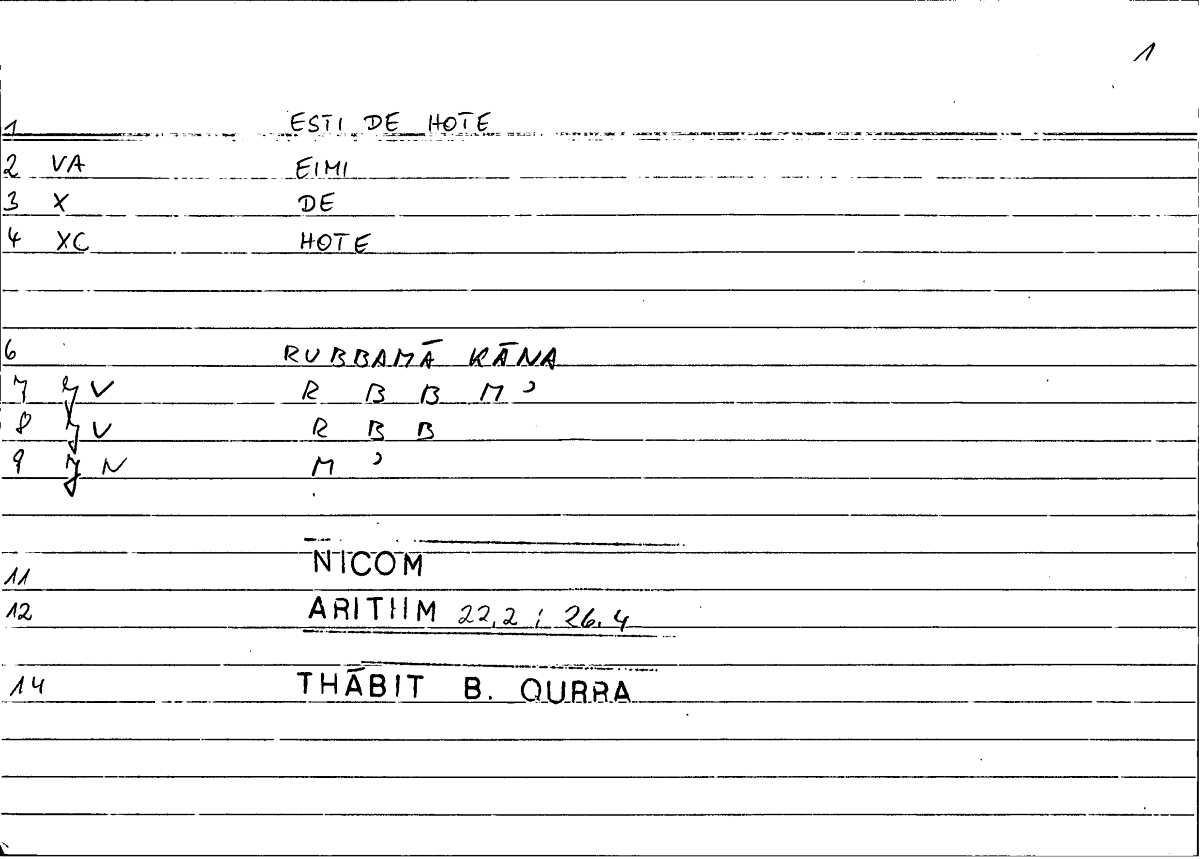 1
1 ESTI DE HOTE
2 VA EIMI
3 X DE
4 XC HOTE
6 RUBBAMĀ KĀNA
7 V R B B M ʾ
8 V R B B
9 N M ʾ
11 NICOM
12 ARITHM 22,2 ; 26.4
14 THĀBIT B. QURRA